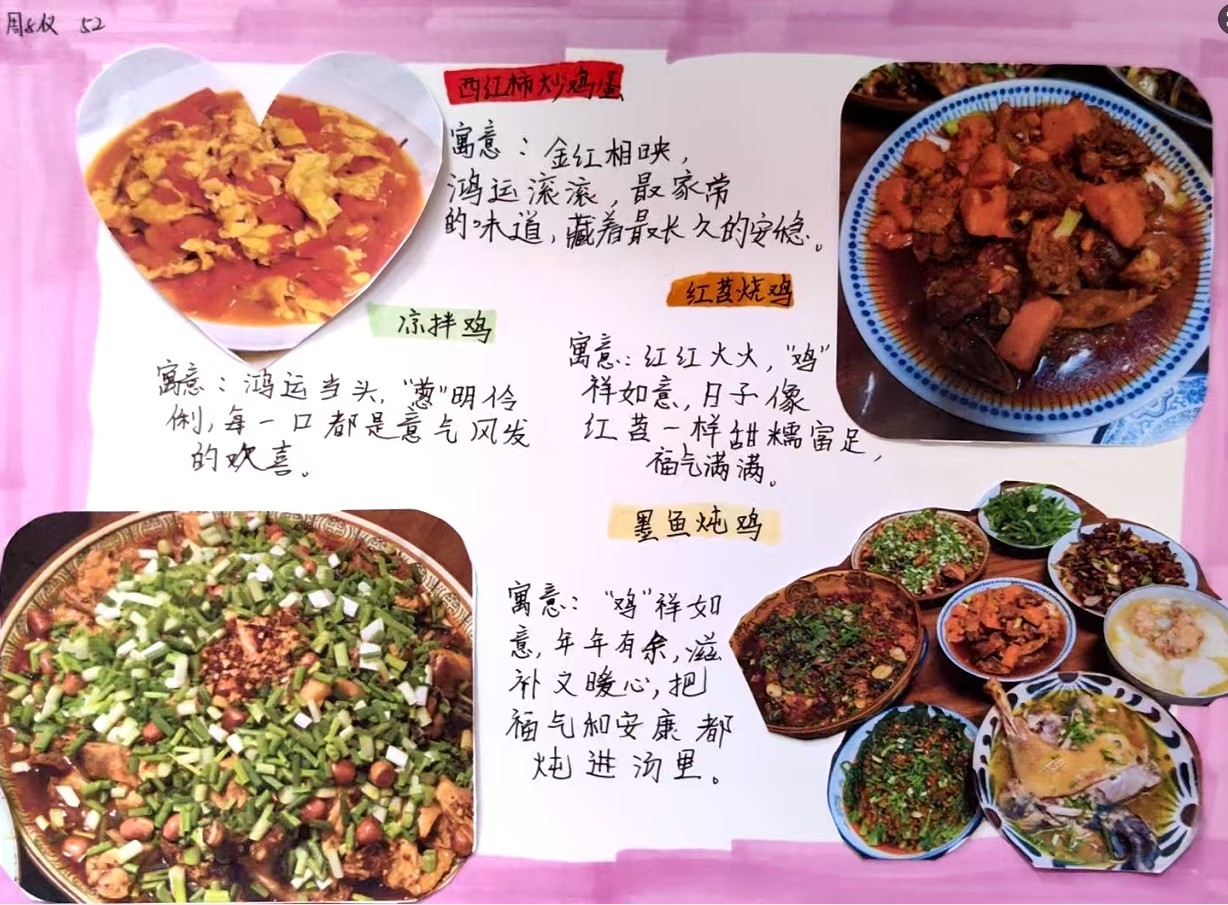 52
西红柿炒鸡蛋
寓意：金红相映，
鸿运滚滚，最家常
的味道，藏着最长久的安稳。
红苕烧鸡
寓意：红红火火，"鸡"
祥如意，日子像
红苕一样甜糯富足，
福气满满。
凉拌鸡
寓意：鸿运当头，"葱"明伶
俐，每一口都是意气风发
的欢喜。
墨鱼炖鸡
寓意："鸡"祥如
意，年年有余，滋
补又暖心，把
福气和安康都
炖进汤里。